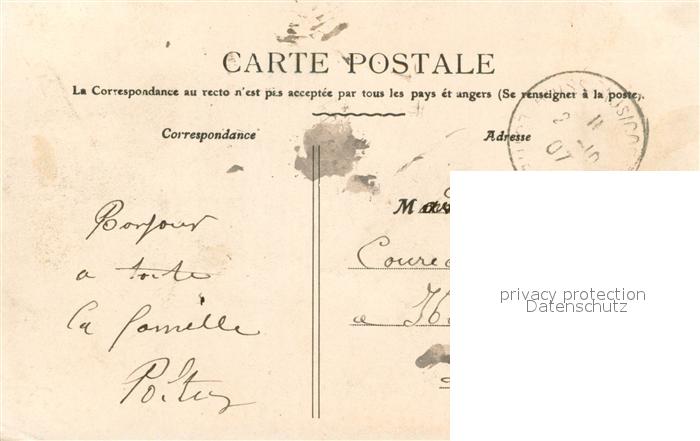 CARTE POSTALE
La Correspondance au recto n'est pas acceptée par tous les pays ét angers (Se renseigner à la poste).
Correspondance
Adresse
11
2 -10
07
M
Bonjour
a toute
la famille
à
privacy protection
Datenschutz